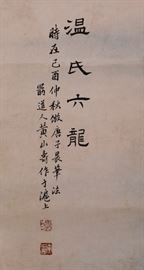 温氏六龍
時在己酉仲秋倣唐子畏筆法
罽道人黃山壽作于滬上